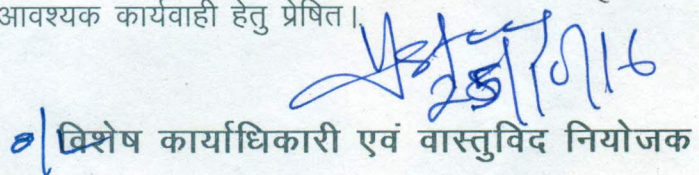 आवश्यक कार्यवाही हेतु प्रेषित।
विशेष कार्याधिकारी एवं वास्तुविद नियोजक